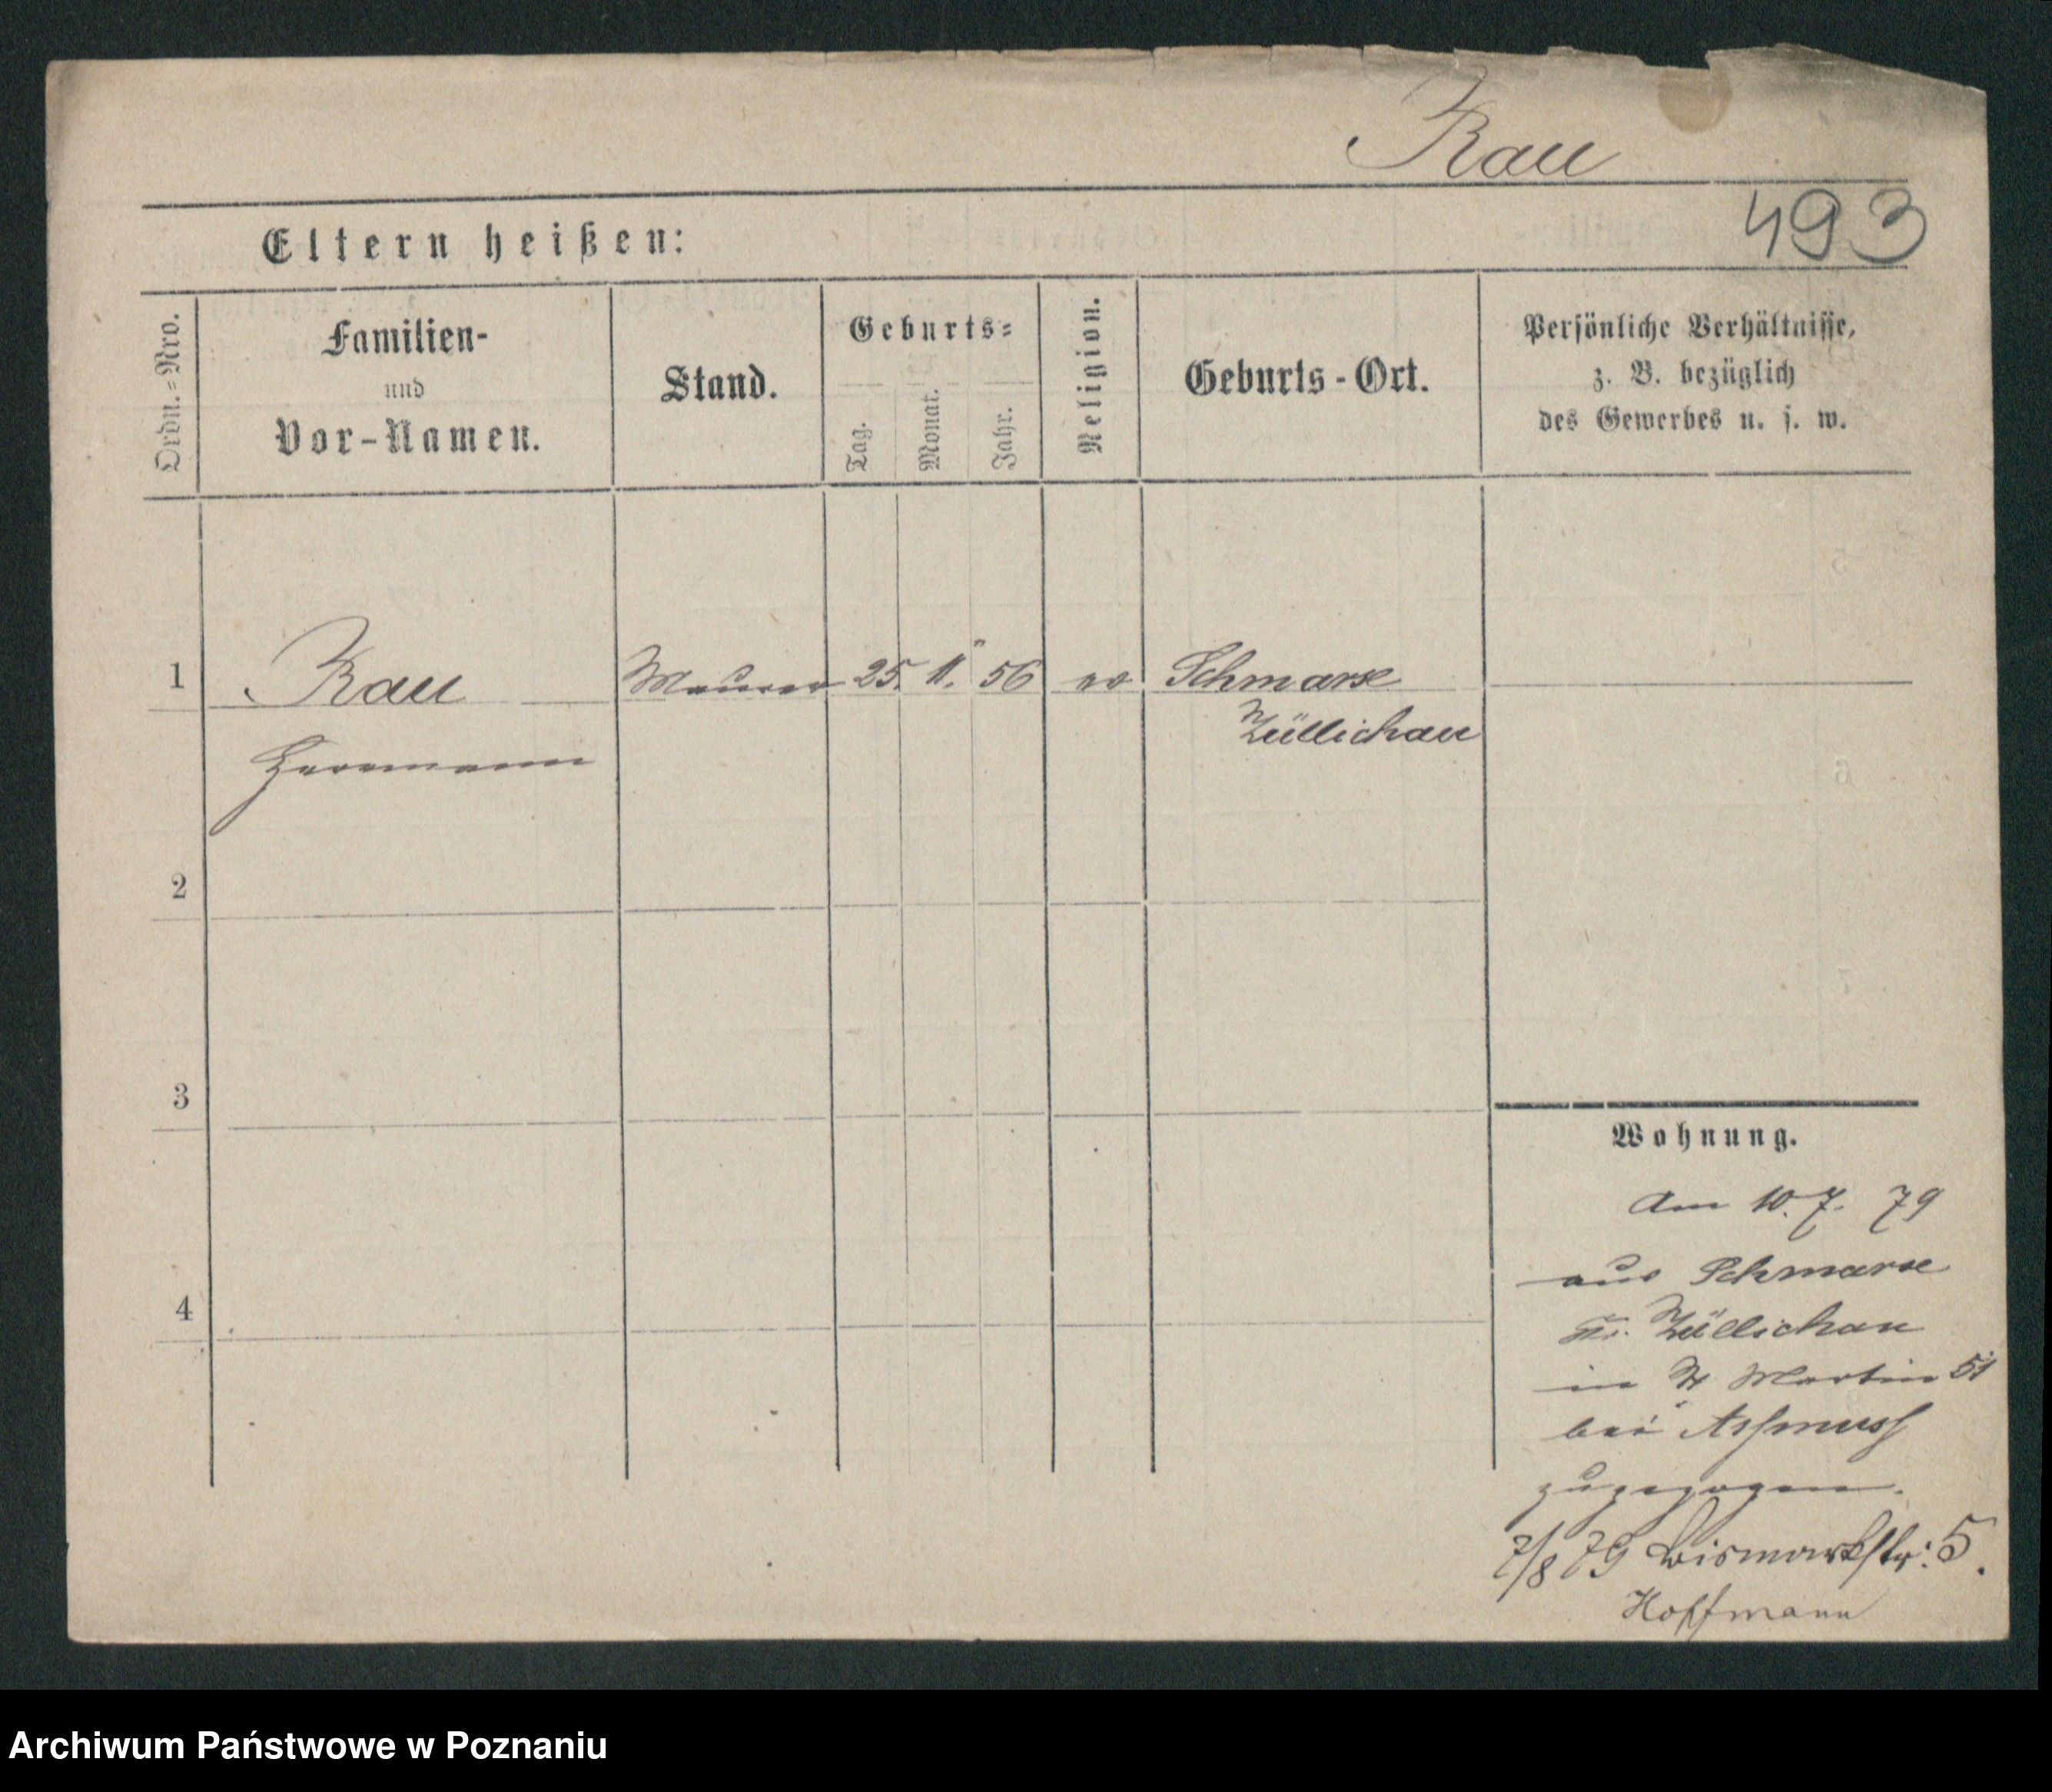 Rau
493
Eltern heißen:
Ordn.=Nro.
Familien-
und
Vor-Namen.
Stand.
Geburts=
Tag.
Monat.
Jahr.
Religion.
Geburts-Ort.
Persönliche Verhältnisse,
z. B. bezüglich
des Gewerbes u. s. w.
1 Rau Maurer 25. 11. 56 ev Schmarse
Züllichau
Herrmann
2
3
4
Wohnung.
Am 10. 7. 79
aus Schmarse
Kr. Züllichau
in St Martin 51
bei Assmuss
zugezogen.
7/8 79 Bismarkstr: 5.
Hoffmann
Archiwum Państwowe w Poznaniu